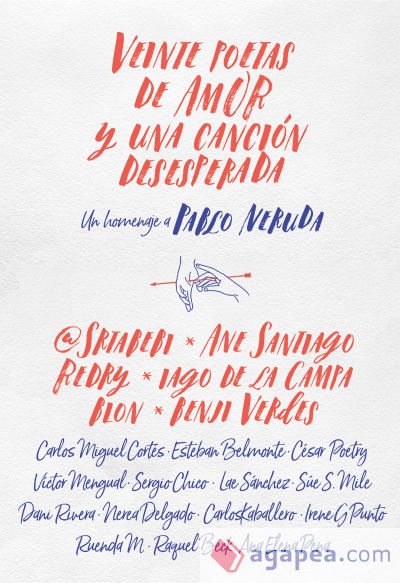 VEINTE POETAS
DE AMOR
Y UNA CANCIÓN
DESESPERADA
Un homenaje a PABLO NERUDA
@SRTABEBI * ANE SANTIAGO
REDRY * IAGO DE LA CAMPA
BLON * BENJI VERDES
Carlos Miguel Cortés · Esteban Belmonte · César Poetry
Víctor Mengual · Sergio Chico · Lae Sánchez · Sue S. Mile
Dani Rivera · Nerea Delgado · CarlosKaballero · Irene G Punto
Ruenda M · Raquel Beck · Ana Elena Pena
agapea.com